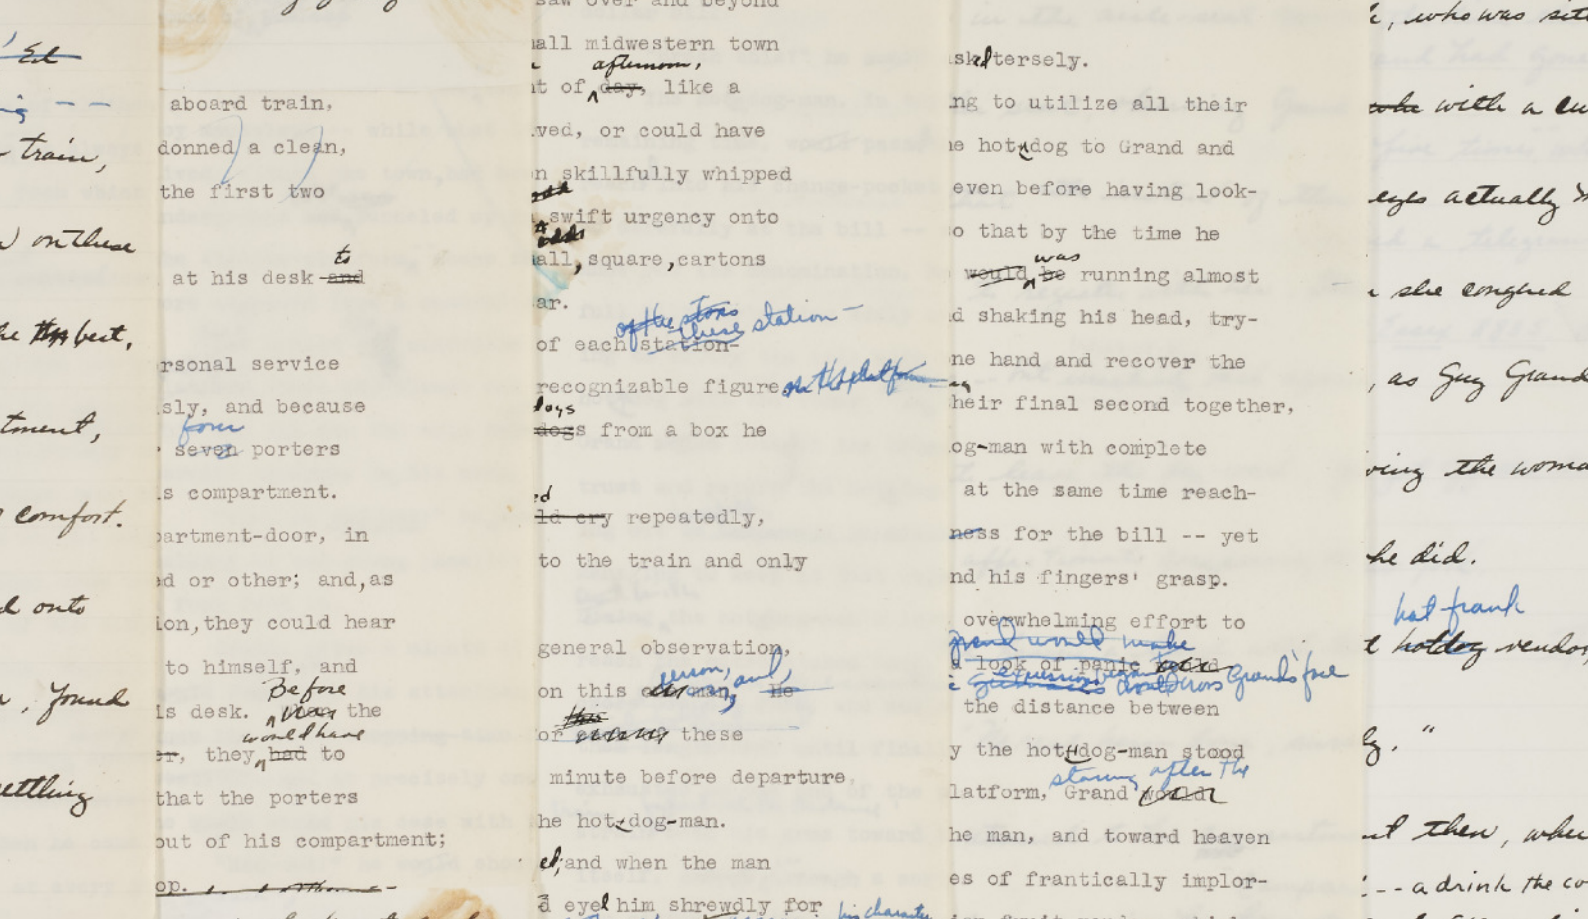 Ed
train,
on these
best,
tment,
comfort.
onto
, found
ettling
aboard train,
donned a clean,
the first two
to
at his desk and
rsonal service
sly, and because
four
seven porters
s compartment.
partment-door, in
d or other; and, as
ion, they could hear
to himself, and
Before
is desk. the
would have
er, they had to
that the porters
out of his compartment;
op.
saw over and beyond
all midwestern town
afternoon,
t of day, like a
ved, or could have
n skillfully whipped
swift urgency onto
all, square, cartons
ar.
of the stops
these station-
of each station-
recognizable figure on the platform
dogs
dogs from a box he
ed
ld cry repeatedly,
to the train and only
general observation,
person, and,
on this man, He
this
or these
minute before departure,
he hot-dog-man.
ed, and when the man
d eyed him shrewdly for his character
sked tersely.
ng to utilize all their
e hot-dog to Grand and
even before having look-
o that by the time he
was
would be running almost
d shaking his head, try-
ne hand and recover the
heir final second together,
og-man with complete
at the same time reach-
ness for the bill -- yet
nd his fingers' grasp.
overwhelming effort to
Grand would make
a look of panic
expression across Grand's face
the distance between
y the hot-dog-man stood
staring after the
latform, Grand would
he man, and toward heaven
es of frantically implor-
, who was sitt
who with a cu
eyes actually
she coughed
, as Guy Grand
ving the woma
he did.
hot frank
hotdog vendor,
ly."
t then, when
-- a drink the co